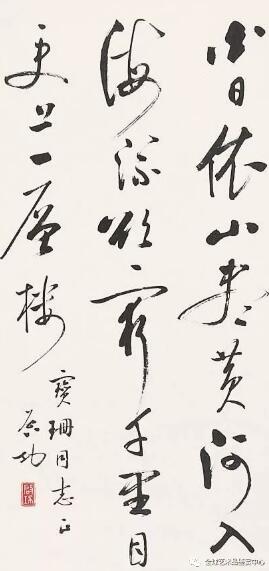 白日依山盡黄河入
海流欲窮千里目
更上一層樓
寶珊同志正
启功